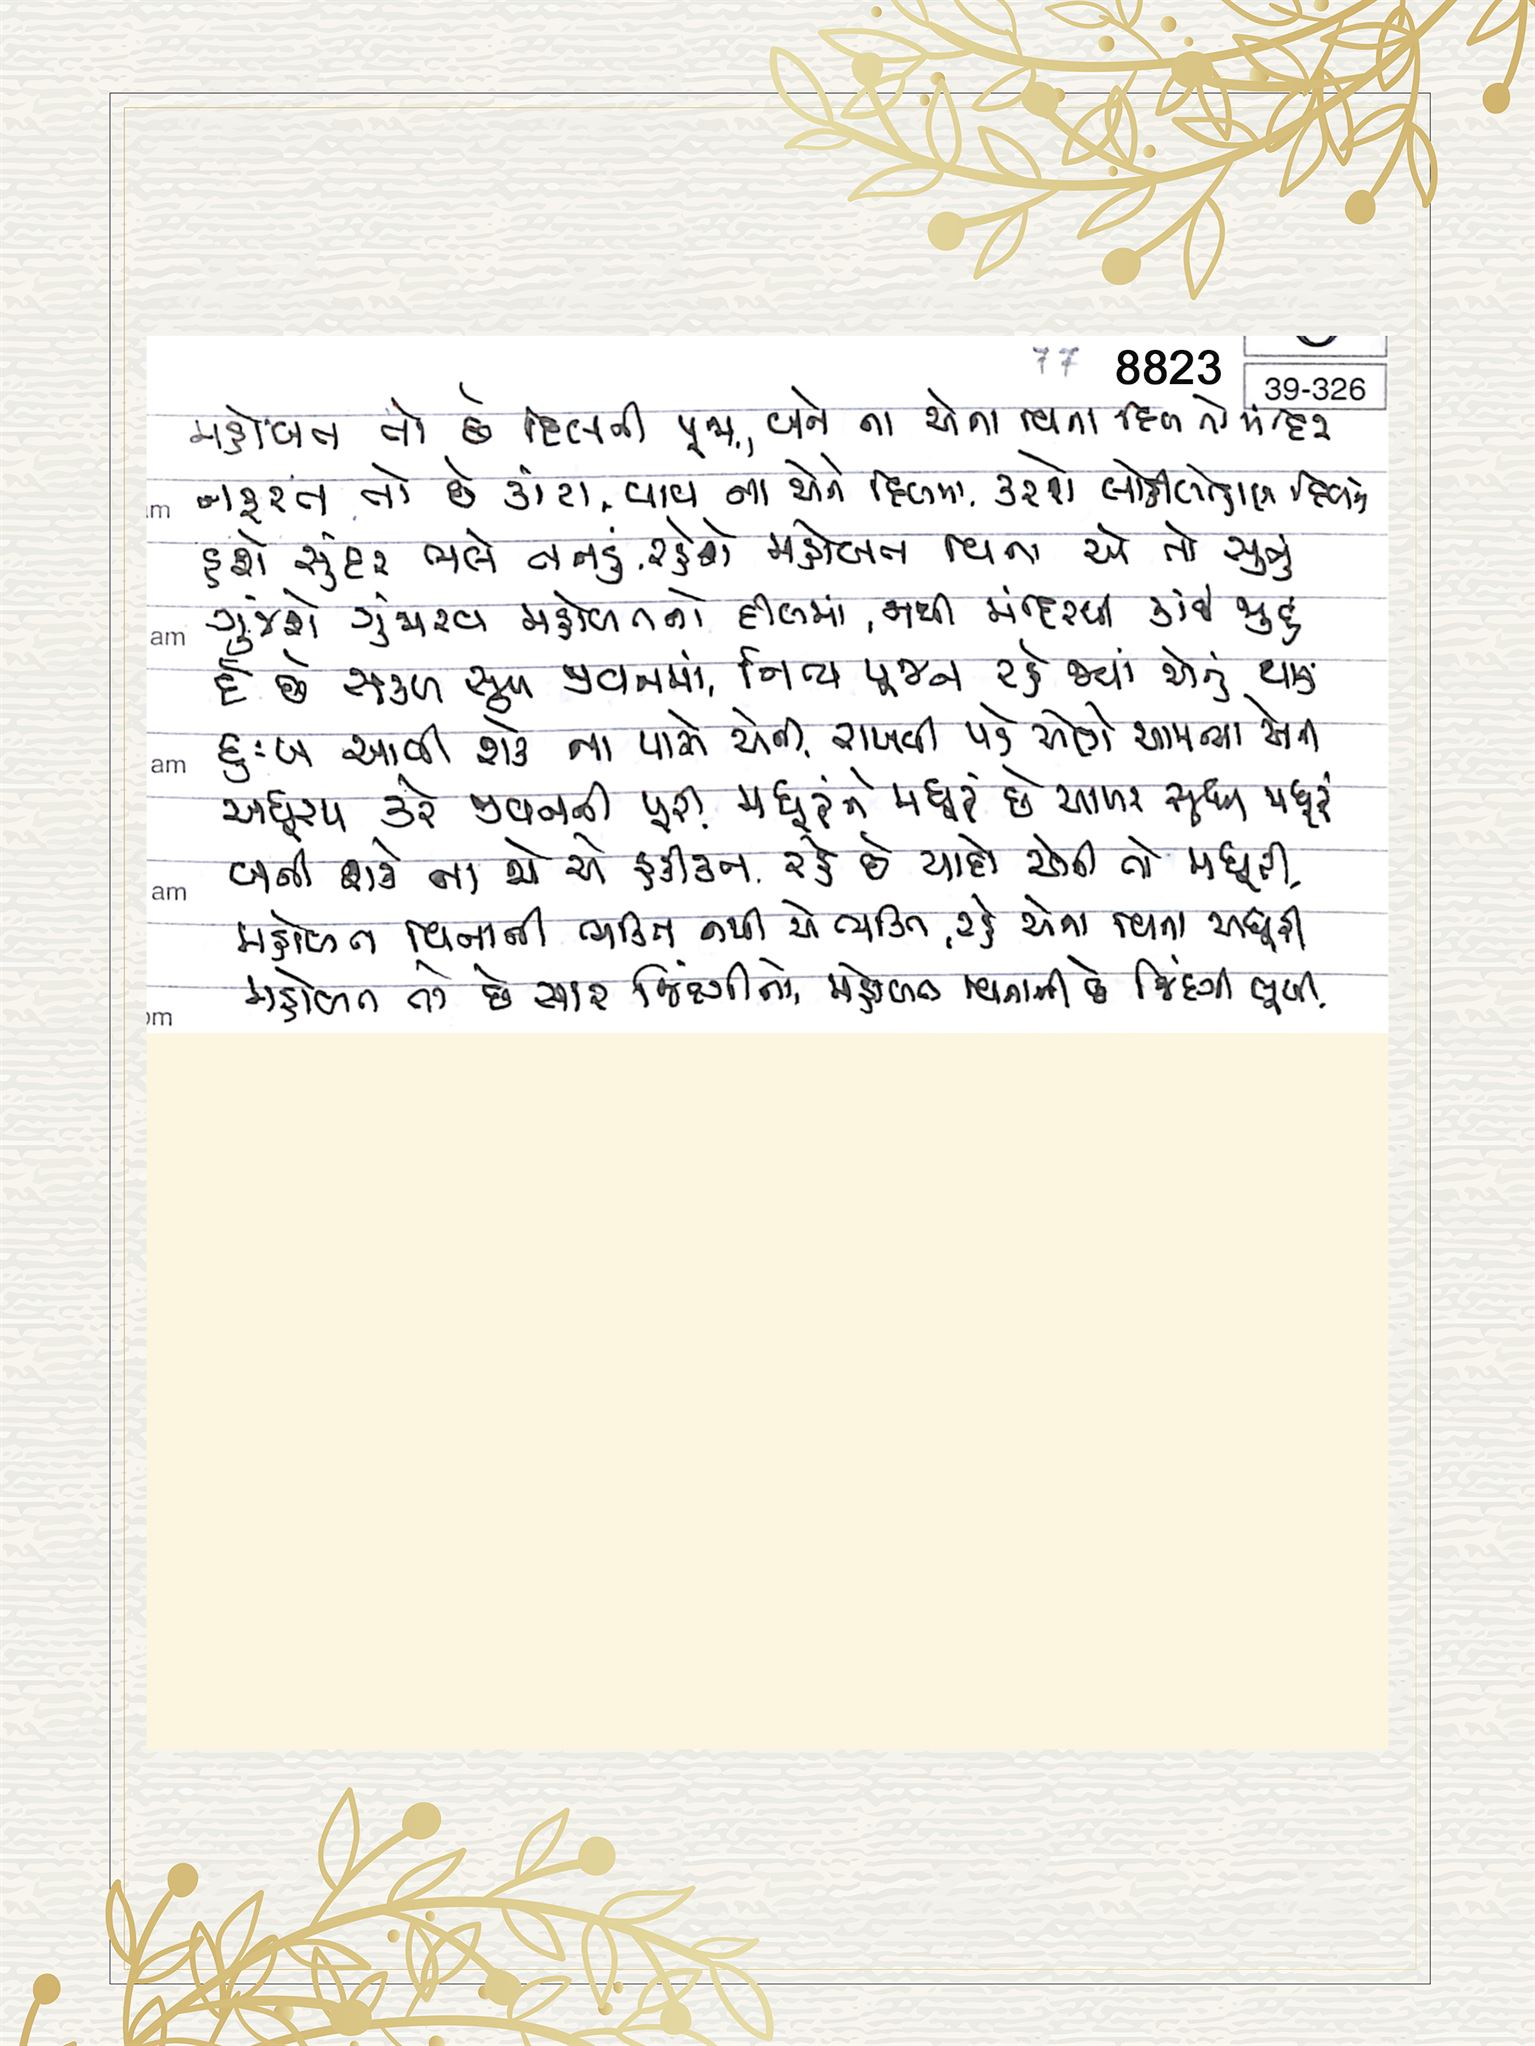 77 8823
39-326
મહોબત તો છે દિલની પૂજા, બને ના એના બિના દિલ તો મંદિર
am નફરત તો છે કાંટા, વાવ ના એને દિલમાં, કરશે લોહીલોહાણ દિલને
હશે સુંદર ભલે તનડું, રહેશે મહોબત બિના એ તો સુનું
am ગુંજશે ગુંજારવ મહોબતનો દીલમાં, નથી મંદિરથી કાંઈ જુદું
દે છે સકળ સુખ જીવનમાં, નિત્ય પૂજન રહે જ્યાં એનું થાતું
am દુઃખ આવી શકે ના પાસે એની, રાખવી પડે એણે આમન્યા એની
અધૂરપ કરે જીવનની પૂરી, મધૂરું ને મધૂરું છે આખર સુધી મધૂરું
am બની શકે ના એ એ હકીકત, રહે છે યાદો એની તો મધૂરી
મહોબત બિનાની વ્યક્તિ નથી એ વ્યક્તિ, રહે એના બિના અધૂરી
pm મહોબત તો છે સાર જિંદગીનો, મહોબત બિનાની છે જિંદગી લૂખી.